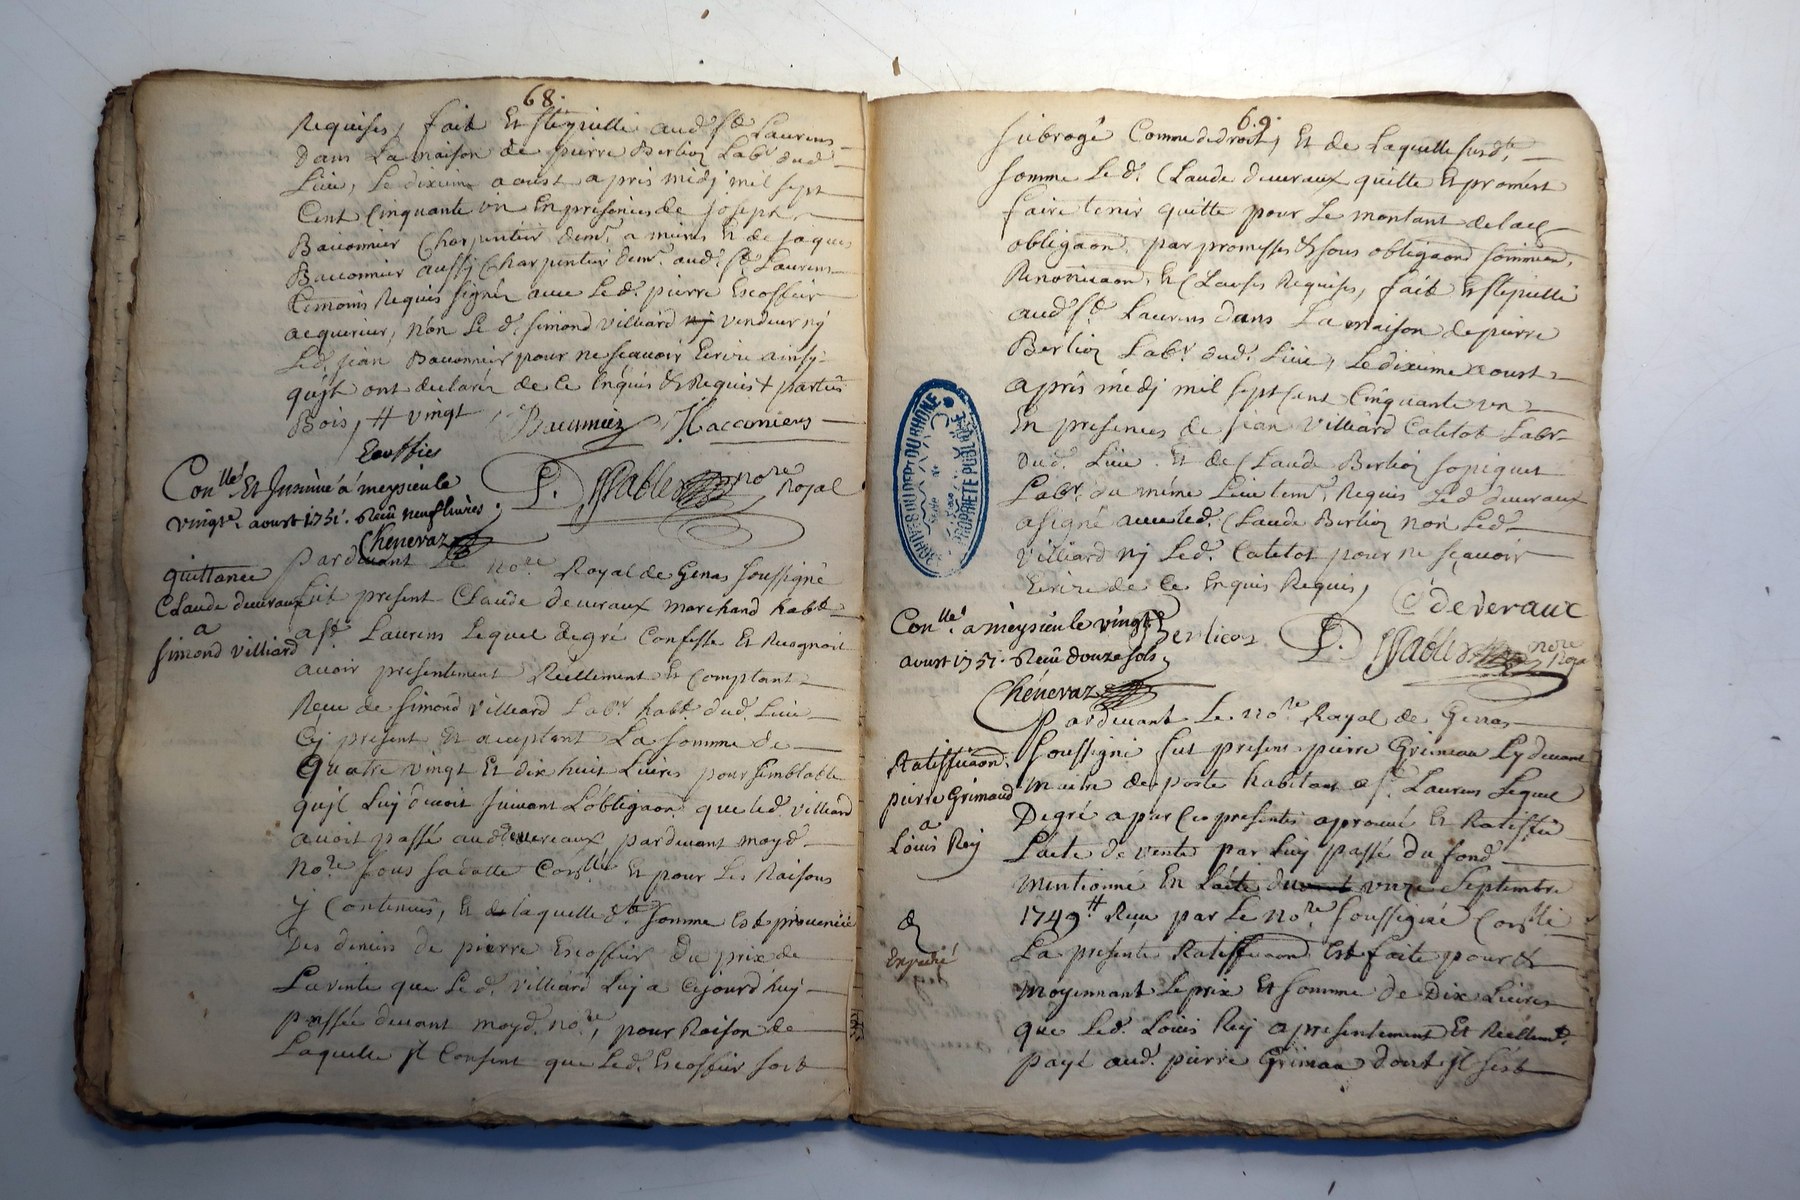 68.
Requises, fait Et stipullé aud.t S.t Laurens
dans La maison de pierre Berlioz Lab.r dud.
Lieu, Le dixieme aoust apres midj mil sept
Cent Cinquante un En presences de joseph
Baconnier Charpentier dem.t a mions Et de jaques
Baconnier aussy Charpentier dem.t aud. S.t Laurens
temoins Requis signéz avec Led. pierre Escoffier
acquereur, non Le d. simond villiard ny vendeur ny
Led. jean Baconnier pour ne sçavoir Ecrire ainsy
qu'jls ont declaréz de ce Enquis & Requis +
Bois, # vingt
Con.llé Et Insinué á meysieu le
vingt.e aoust 1751. Reçu neuf livres.
Chenevaz
no.re Royal
quittance
Claude devuraux
a
simond villiard
pardevant Le no.re Royal de Genas soussigné
fut present Claude devuraux marchand hab.t
a S.t Laurens Lequel de gré Confesse Et Recognoit
avoir presentement Réellement Et Comptant
Reçu de simond villiard Lab.r hab.t dud. Lieu
Cy present Et acceptant La somme de
Quatre vingt Et dix huit Livres pour semblable
qu'jl Luy devoit suivant L'obligaon que led. villiard
avoit passé aud. devereaux, pardevant moyd.
No.re sous sa datte Con.llé Et pour Les Raisons
y Contenues, Et de laquelle d.te somme Est provenüe
Des deniers de pierre Escoffier Du prix de
La vente que Le d. villiard Luy a Cejourd'huy
passée devant moyd. no.re, pour Raison de
Laquelle jl Consent que Led. Escoffier soit
69.
subrogé Comme de droit, Et de Laquelle susd.te
somme Le d. Claude devuraux quitte Et promést
faire tenir quitte pour Le montant de lad.
obligaon. par promesses & sous obligaons
Renonciaon, Et Clauses Requises, fait Et stipullé
aud. S.t Laurens dans La maison de pierre
Berlioz Lab.r dud. Lieu, Le dixieme aoust
apres midj mil sept Cent Cinquante un
En presences de jean villiard Catelot Lab.r
dud. Lieu. Et de Claude Berlioz
Lab.r du méme Lieu tem.s Requis Led. devuraux
a signé avec led. Claude Berlioz non Led.
villiard ny Led. Catelot pour ne sçavoir
Ecrire de Ce Enquis Requis,
C deveraux
Berlioz
no.re Roya
Con.llé a meysieu le vingt
aoust 1751. Reçu douze sols,
Chénevaz
ARCHIVES DU DEPT DU RHONE
PROPRIETE PUBLIQUE
Ratiffiaon.
pierre Grimaud
a
Loüis Rey
Expedié
pardevant Le no.re Royal de Genas
soussigné fut present pierre Grimaud Cy devant
Maitre de poste habitant a S.t Laurens Lequel
De gré a par Ces presentes aprouvé Et Ratiffié
L'acte de vente par Luy passé du fond
Mentionné En L'acte du onze Septembre
1749 # Reçu par Le no.re soussigné Con.llé
La presente Ratiffiaon Est faite pour &
Moyennant Le prix Et somme de Dix Livres
que Led. Loüis Rey a presentement Et Réellem.t
payé aud. pierre Grimaud dont jl s'est